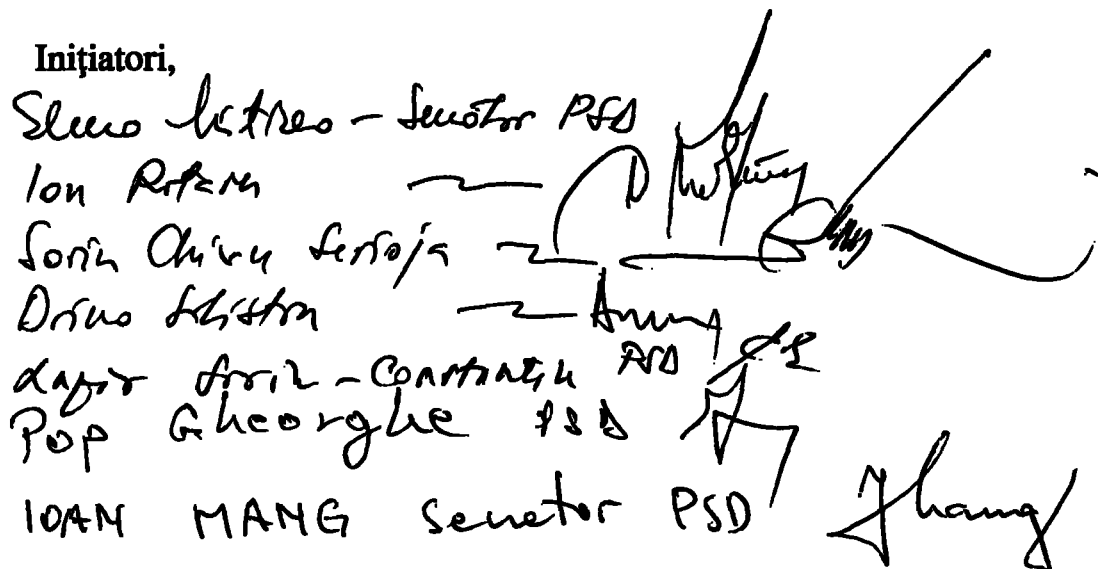 Inițiatori,
Senator PSD
Ion Rotaru
Sorin Chivu Serioja
Doina Silistru
Lazăr Sorin-Constantin PSD
Pop Gheorghe PSD
IOAN MANG Senator PSD